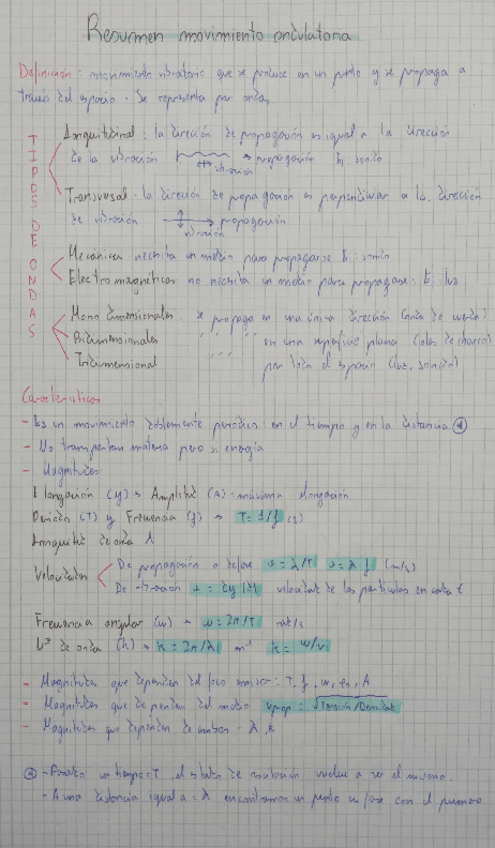 Resumen movimiento ondulatorio
Definición: movimiento vibratorio que se produce en un punto y se propaga a
través del espacio. Se representa por ondas
TIPOS DE ONDAS
Longuitudinal: la dirección de propagación es igual a la dirección
de la vibración propagación Ej. sonido
vibración
Transversal: la dirección de propagación es perpendicular a la dirección
de vibración propagación
vibración
Mecánica: necesita un medio para propagarse Ej: sonido
Electromagnéticas: no necesita un medio para propagarse: Ej: luz
Monodimensionales: se propaga en una única dirección (onda de cuerda)
Bidimensionales " " " en una superficie plana (olas de charco)
Tridimensional " " " por todo el espacio (luz, sonido)
Características
- Es un movimiento doblemente periódico: en el tiempo y en la distancia *
- No transportan materia pero si energía
- Magnitudes
Elongación (y) → Amplitud (A) = máxima elongación
Periodo (T) y Frecuencia (f) → T = 1/f (s)
Longuitud de onda λ
Velocidades
De propagación o de fase v = λ/T v = λ·f (m/s)
De vibración v = dy/dt velocidad de las partículas en cada t
Frecuencia angular (ω) → ω = 2π/T rad/s
Nº de onda (k) → k = 2π/λ m⁻¹ k = ω/v
- Magnitudes que dependen del foco emisor: T, f, ω, A
- Magnitudes que dependen del medio Vprop = √Tensión/Densidad
- Magnitudes que dependen de ambos: λ, k
* - Pasado un tiempo = T, el estado de vibración vuelve a ser el mismo.
- A una distancia igual a = λ encontramos un punto en fase con el primero